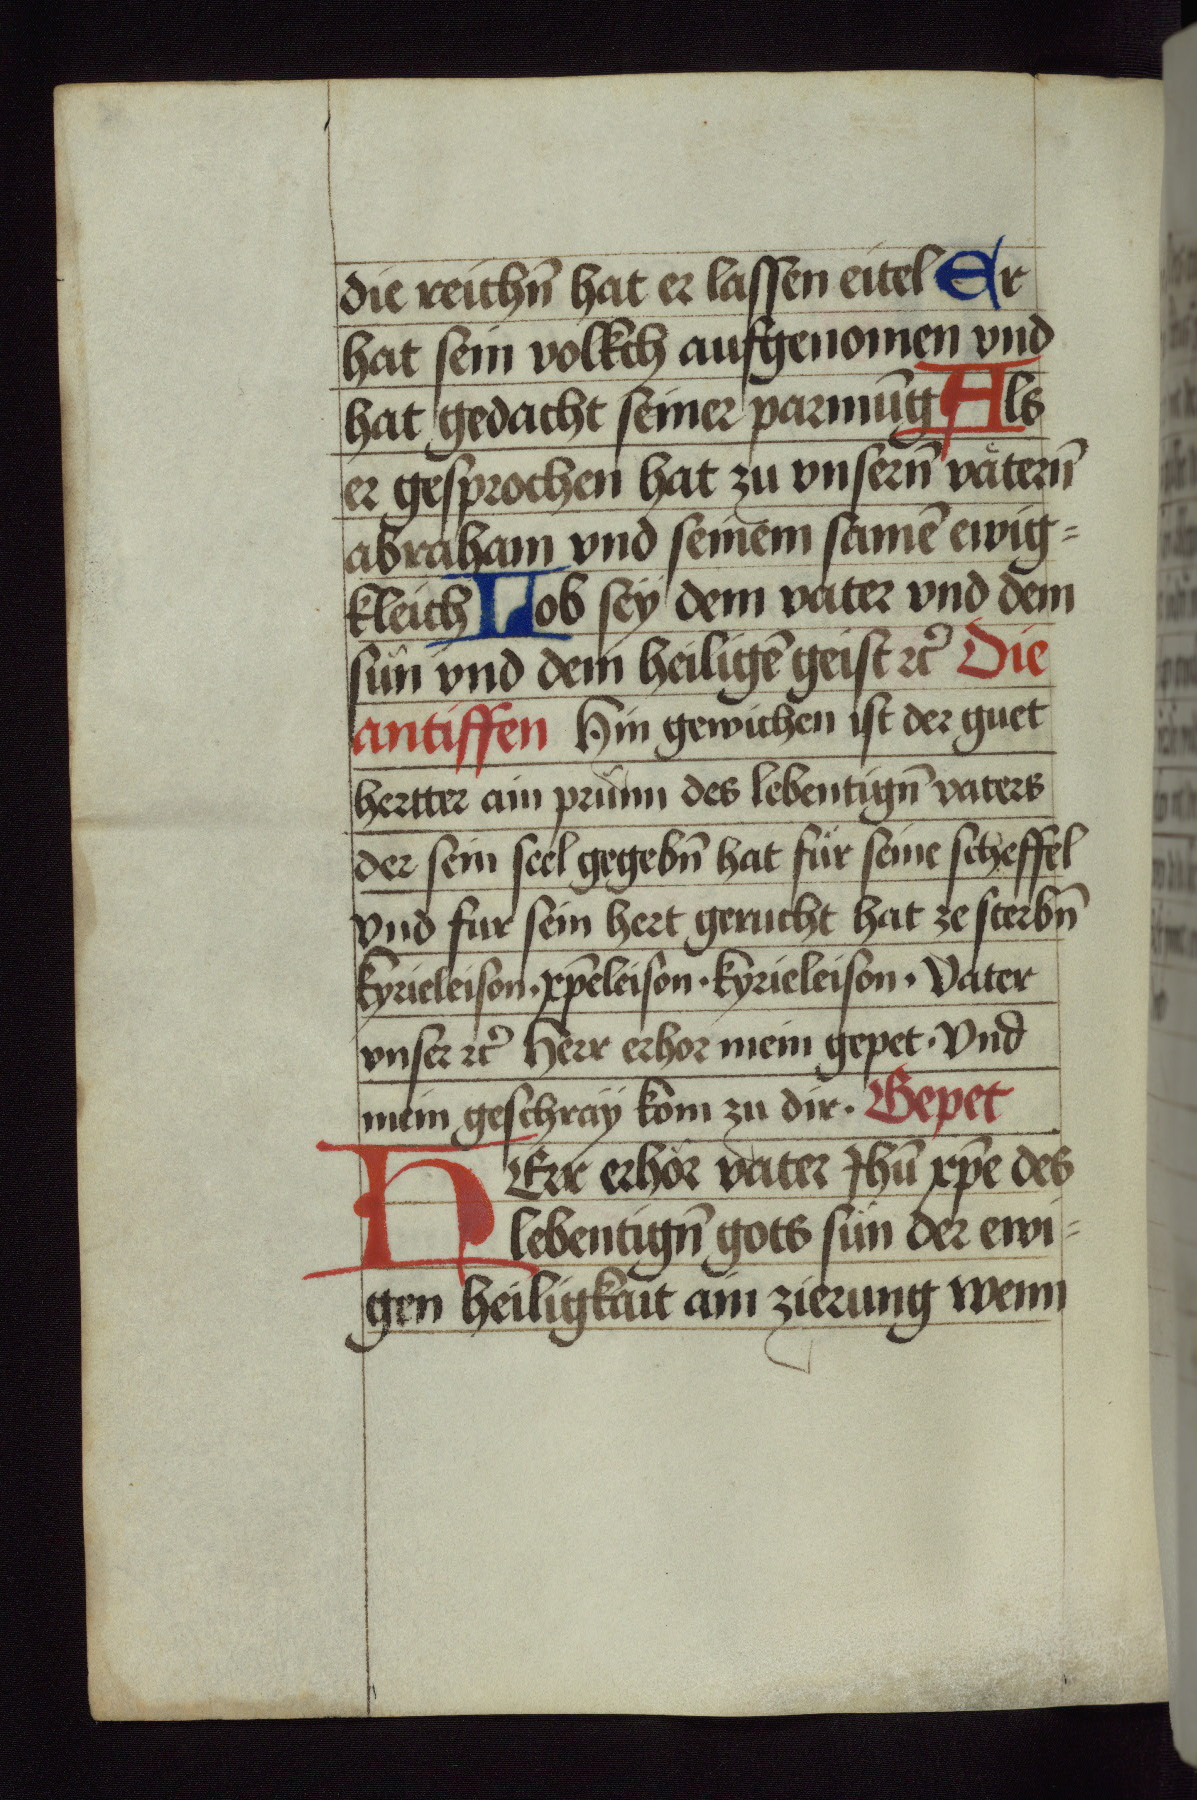 die reichn̄ hat er lassen eitel Er
hat sein volkch aufgenomen vnd
hat gedacht seiner parmūg Als
er gesprochen hat zu vnsern̄ vätern̄
abraham vnd seinem samē ewig=
kleich Lob sey dem vater vnd dem
sün vnd dem heiligē geist ꝛc̄ Die
antiffen Hin gewichen ist der guet
hertter ain prünn des lebentign̄ vaters
der sein seel gegebn̄ hat für seine scheffel
vnd fur sein hert gerucht hat ze sterbn̄
kyrieleison · xp̄eleison · kyrieleison · Vater
vnser ꝛc̄ Herr erhor mein gepet · Vnd
mein geschraÿ kom zu dir · Gepet
HErr erhör vater Jhū xp̄e des
lebentign̄ gots sün der ewi=
gen heiligkait ain zierung wenn